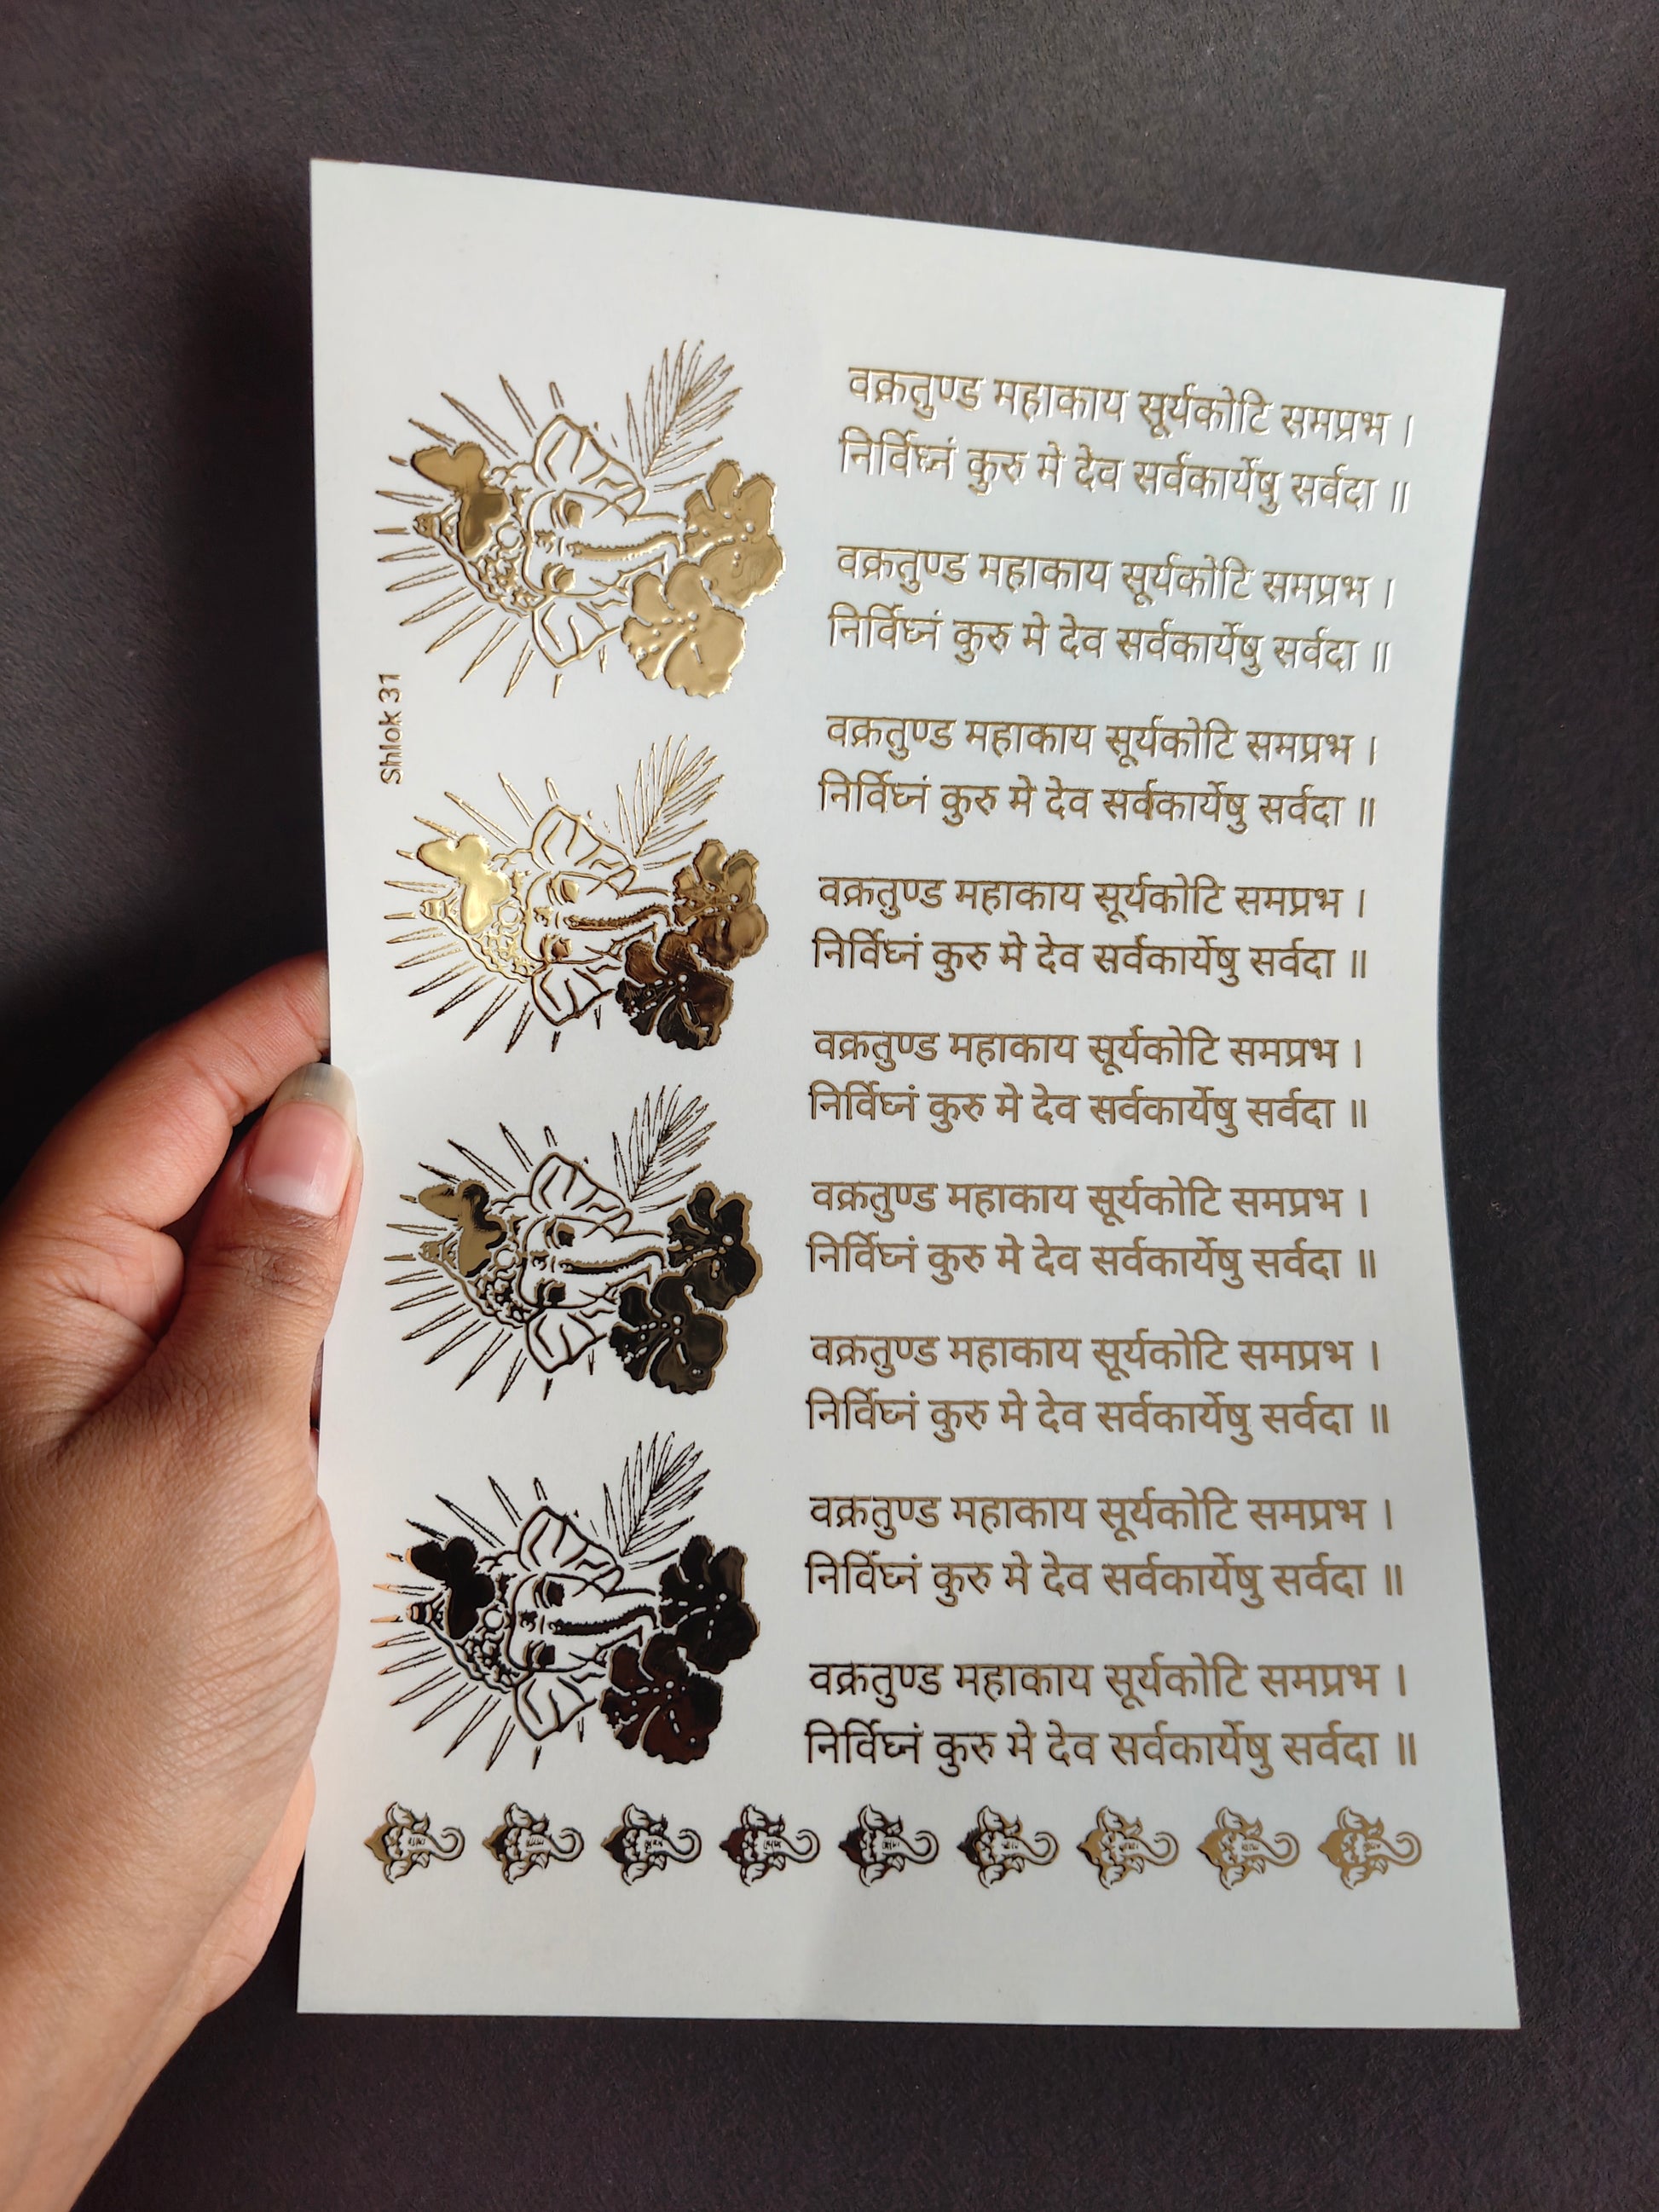 Shlok 31
वक्रतुण्ड महाकाय सूर्यकोटि समप्रभ ।
निर्विघ्नं कुरु मे देव सर्वकार्येषु सर्वदा ॥
वक्रतुण्ड महाकाय सूर्यकोटि समप्रभ ।
निर्विघ्नं कुरु मे देव सर्वकार्येषु सर्वदा ॥
वक्रतुण्ड महाकाय सूर्यकोटि समप्रभ ।
निर्विघ्नं कुरु मे देव सर्वकार्येषु सर्वदा ॥
वक्रतुण्ड महाकाय सूर्यकोटि समप्रभ ।
निर्विघ्नं कुरु मे देव सर्वकार्येषु सर्वदा ॥
वक्रतुण्ड महाकाय सूर्यकोटि समप्रभ ।
निर्विघ्नं कुरु मे देव सर्वकार्येषु सर्वदा ॥
वक्रतुण्ड महाकाय सूर्यकोटि समप्रभ ।
निर्विघ्नं कुरु मे देव सर्वकार्येषु सर्वदा ॥
वक्रतुण्ड महाकाय सूर्यकोटि समप्रभ ।
निर्विघ्नं कुरु मे देव सर्वकार्येषु सर्वदा ॥
वक्रतुण्ड महाकाय सूर्यकोटि समप्रभ ।
निर्विघ्नं कुरु मे देव सर्वकार्येषु सर्वदा ॥
वक्रतुण्ड महाकाय सूर्यकोटि समप्रभ ।
निर्विघ्नं कुरु मे देव सर्वकार्येषु सर्वदा ॥